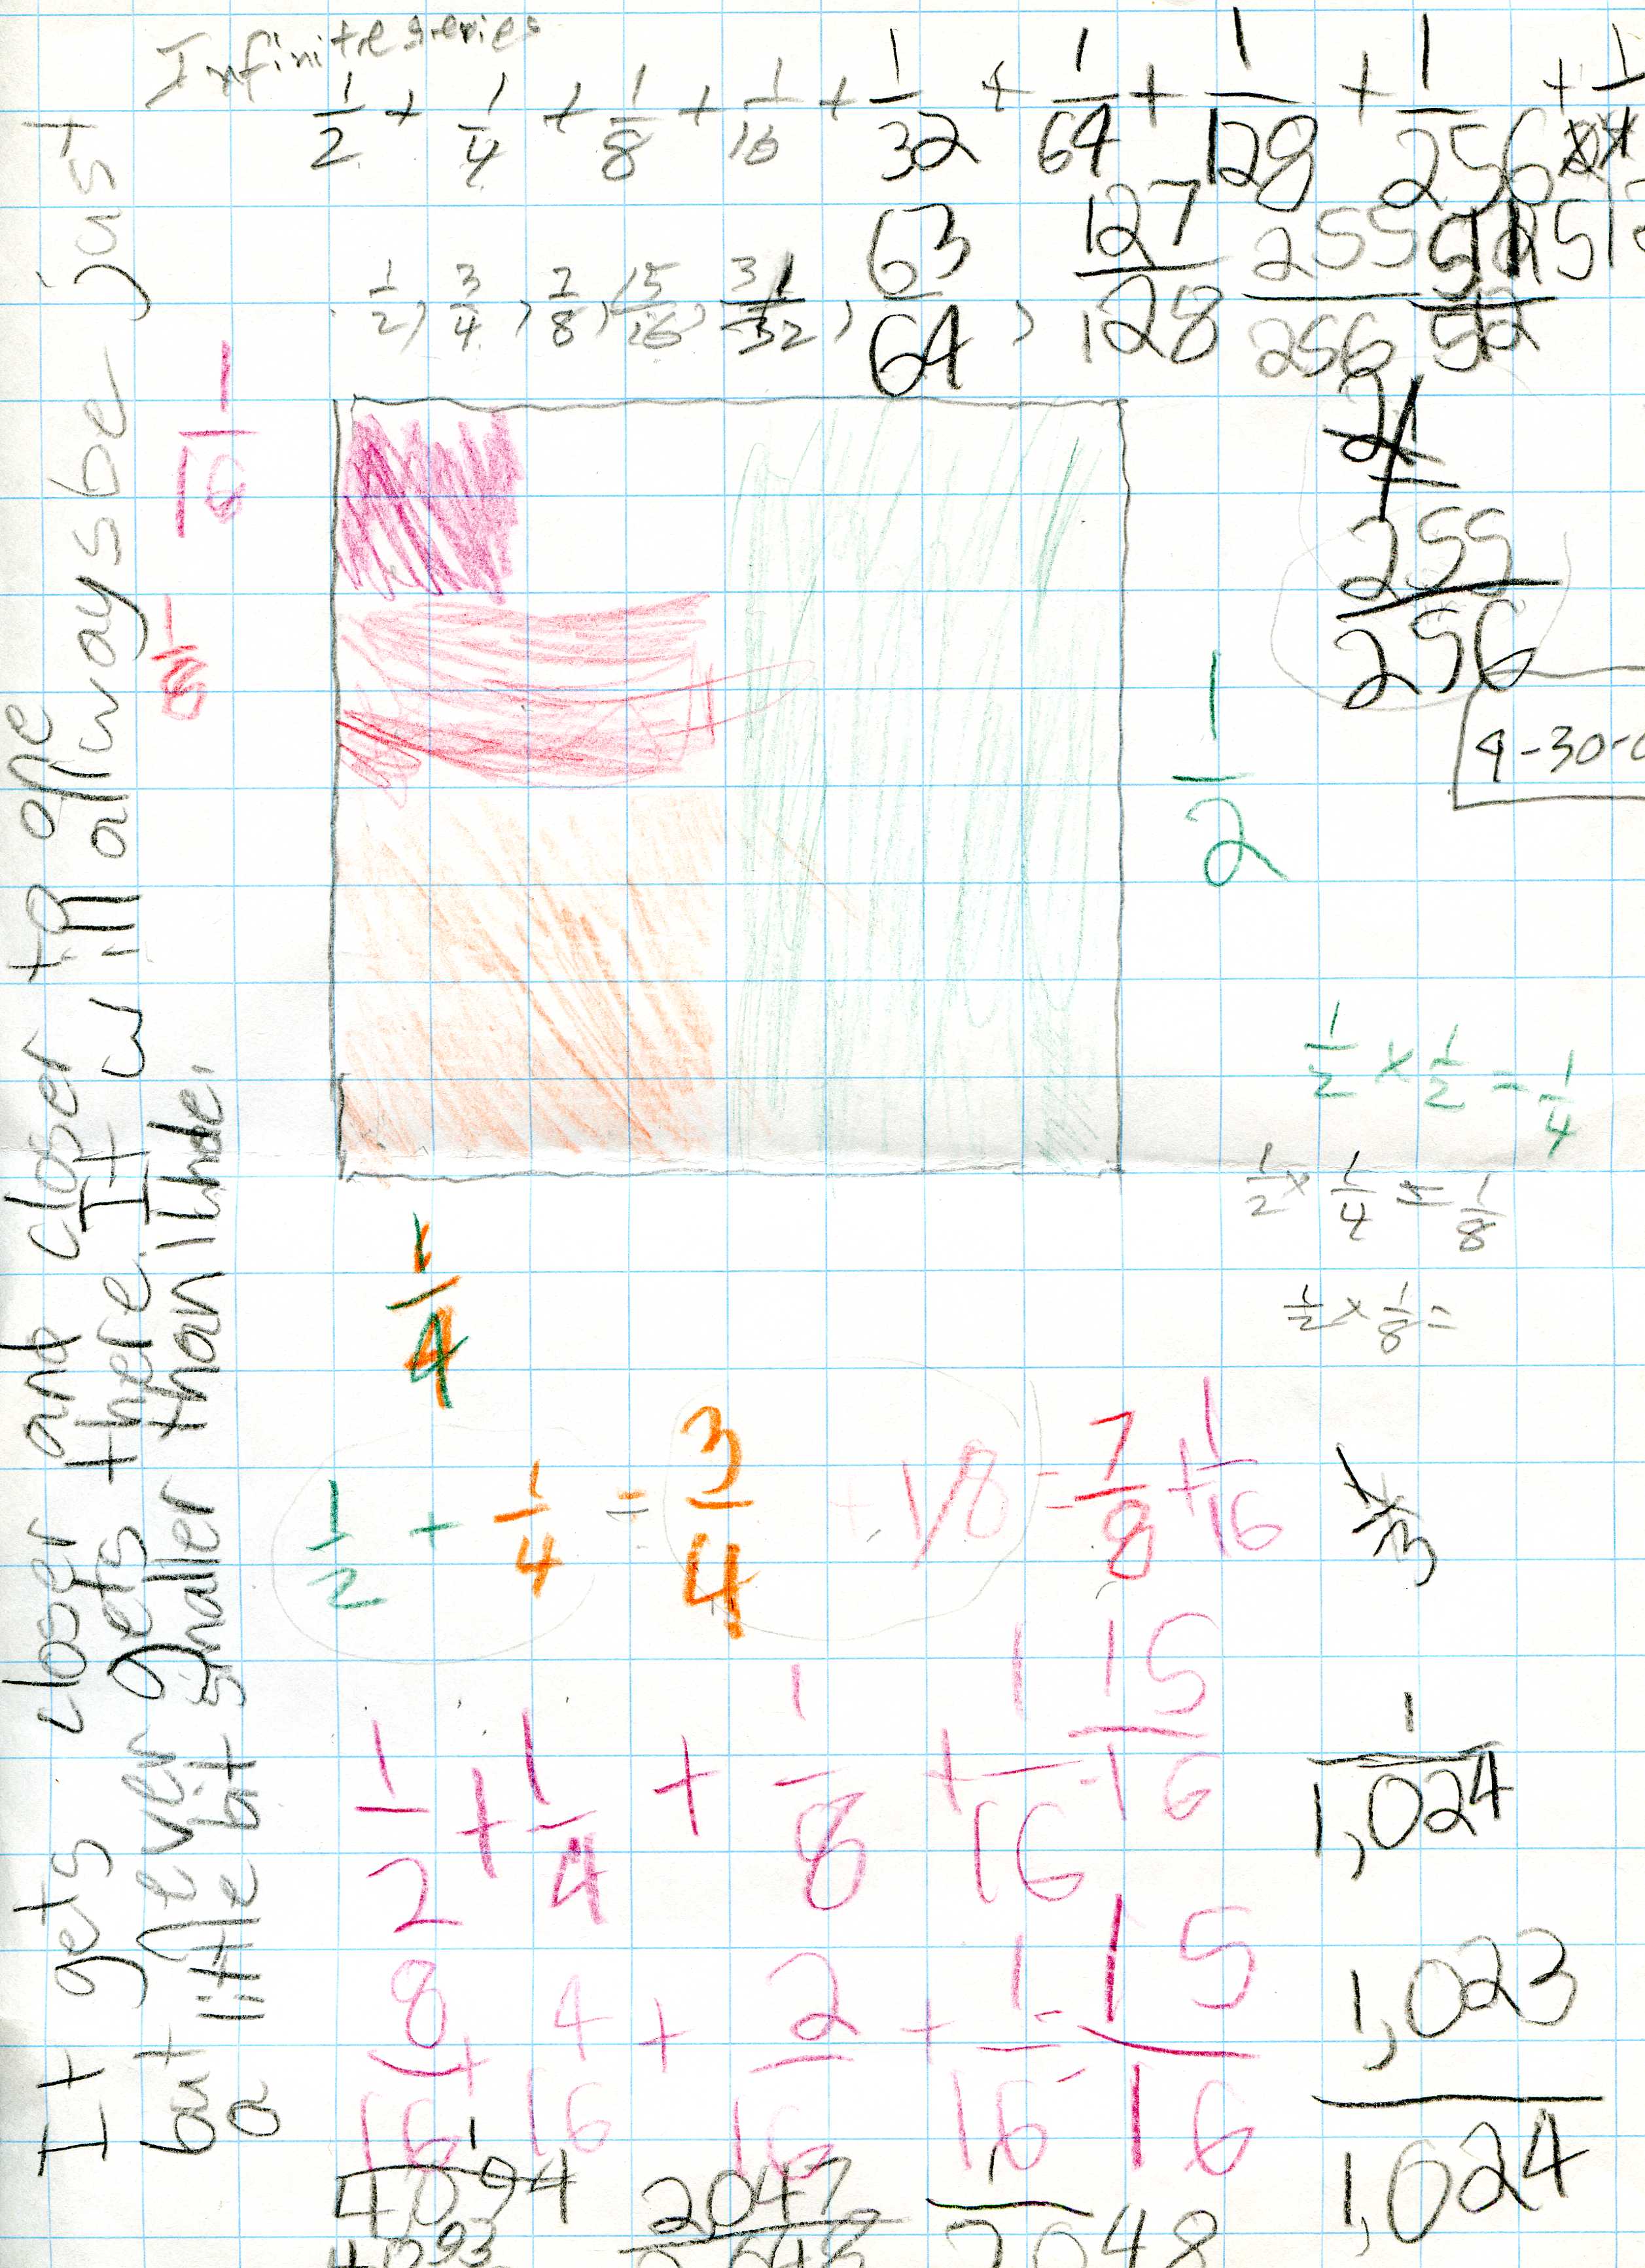 Infinite series
1/2 + 1/4 + 1/8 + 1/16 + 1/32 + 1/64 + 1/128 + 1/256 + 1/512
1/2, 3/4, 7/8, 15/16, 31/32, 63/64, 127/128 255/256 511/512
1/16
1/8
255/256
4-30-0
1/2
1/2 × 1/2 = 1/4
1/2 × 1/4 = 1/8
1/2 × 1/8 =
1/4
1/2 + 1/4 = 3/4 + 1/8 = 7/8 + 1/16
1/2 + 1/4 + 1/8 + 1/16 = 15/16
8/16 + 4/16 + 2/16 + 1/16 = 15/16
1/1,024
1,023/1,024
1/4094 2047/2048 1/2048
4093
It gets closer and closer to one
but never gets there. It will allways be just
a little bit smaller than 1 hole.